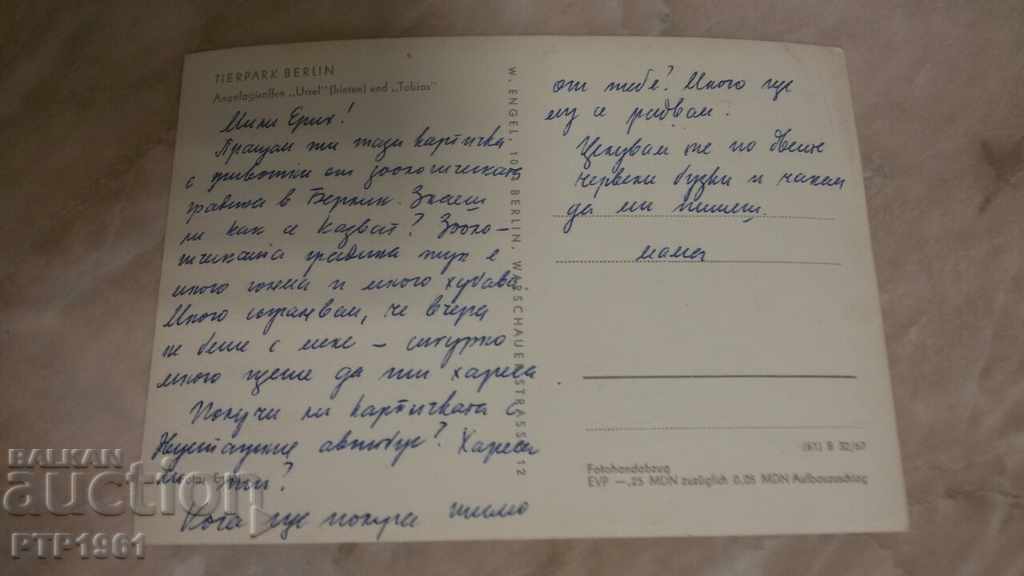 TIERPARK BERLIN
Angolagiraffen „Ursel" (hinten) und „Tobias"
Мили Ерик!
Пращам ти тази картичка
с животни от зоологическата
градина в Берлин. Знаеш
ли как се казват? Зооло-
гическата градина тук е
много голяма и много хубава
Много съжалявам, че вчера
не беше с мене – сигурно
много щеше да ти хареса
Получи ли картичката с
двуетажния автобус? Хареса
ли ти?
Кога ще получа писмо
W. ENGEL, 10 BERLIN, WARSCHAUER STRASSE 12
от тебе? Много ще
му се радвам.
Целувам те по двете
червени бузки и чакам
да ми пишеш.
мама
(61) B 32/67
Fotohandabzug
EVP –,25 MDN zuzüglich 0,05 MDN Aufbauzuschlag
BALKAN
auction
PTP1961